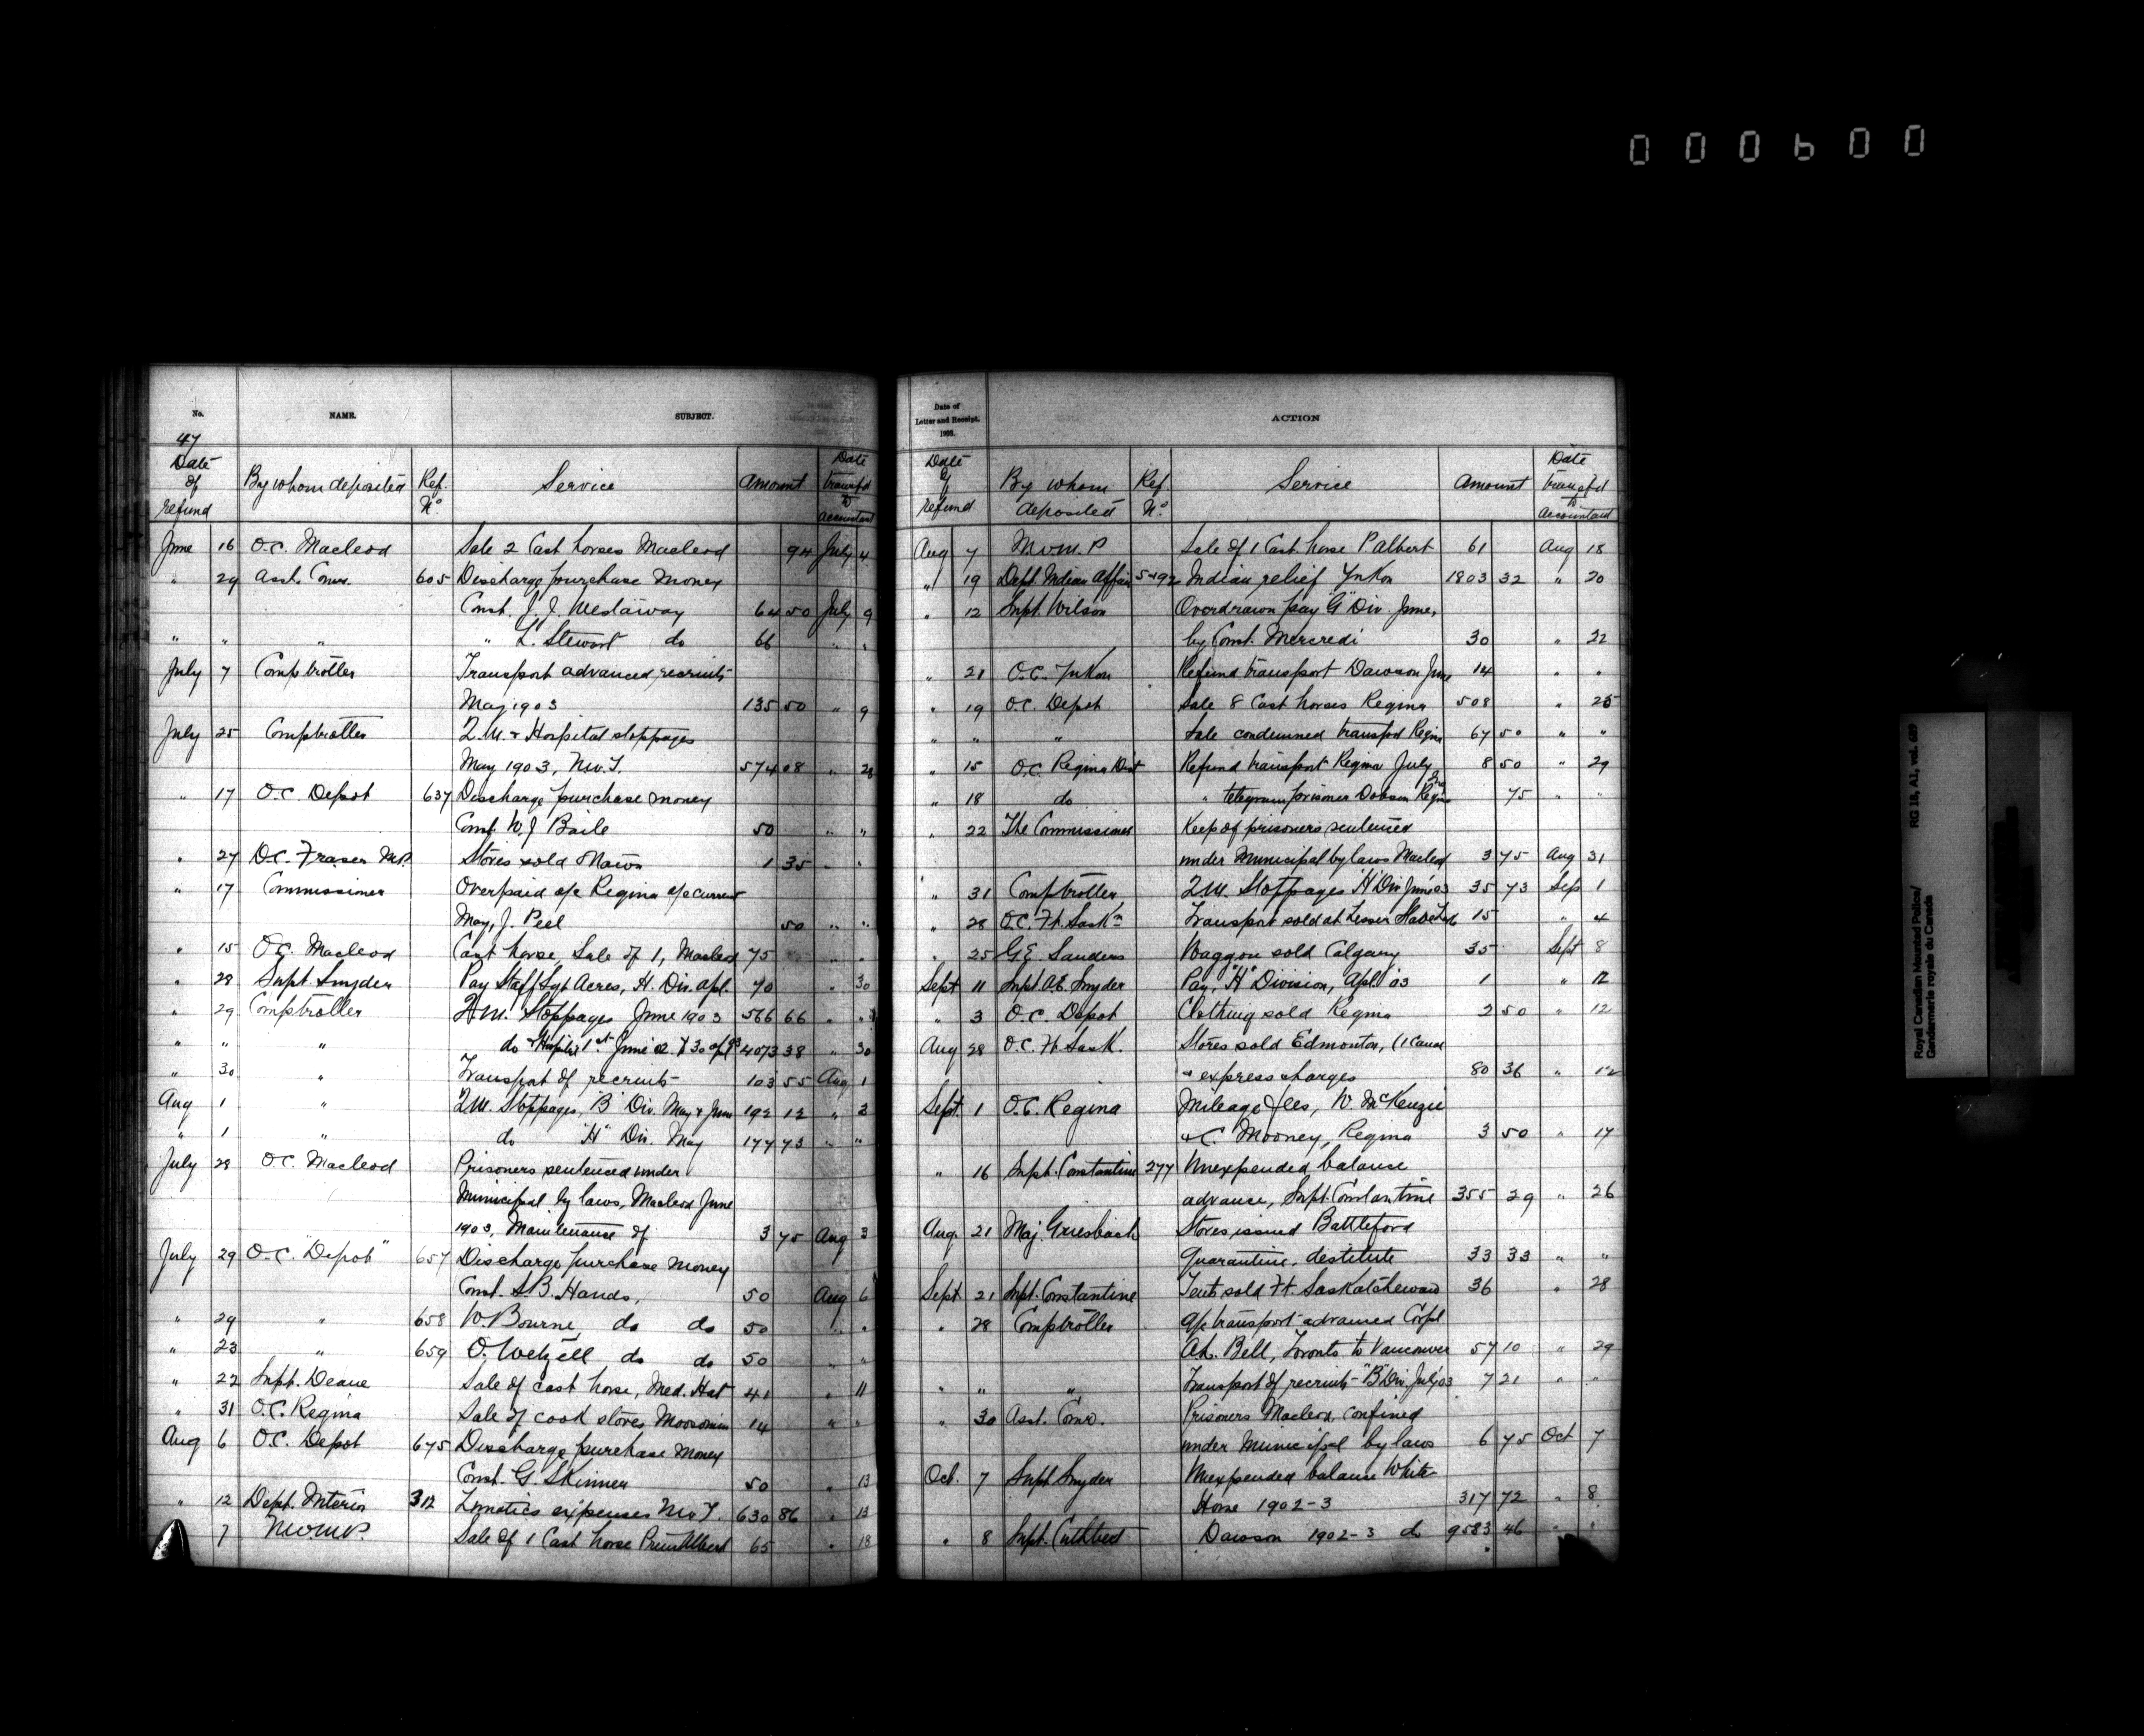 000600
No.
NAME.
SUBJECT.
47
Date of refund
By whom deposited
Ref. No
Service
Amount
Date transf'd to accountant
June 16 O.C. Macleod Sale 2 Cast horses Macleod 94 July 4
" 29 Asst. Comr. 605 Discharge purchase money
Const. J. J. Westaway 64 50 July 9
" " " " L. Stewart do 66 " "
July 7 Comptroller Transport advanced recruits
May 1903 135 50 " 9
July 25 Comptroller Q.M. & Hospital stoppages
May 1903, N.W.T. 574 08 " 28
" 17 O.C. Depot 637 Discharge purchase money
Const. W J Baile 50 " "
" 27 D.C. Fraser M.P. Stores sold 1 35 " "
" 17 Commissioner Overpaid a/c Regina a/c current
May, J. Peel 50 " "
" 15 O.C. Macleod Cast horse, Sale of 1, Macleod 75 "
" 28 Supt. Snyder Pay Staff Sgt Acres, H. Div. Apl. 70 " 30
" 29 Comptroller Q.M. Stoppages June 1903 566 66 " "
" " " do & Hospital 1st June 02 30 apl 03 4073 38 " 30
" 30 " Transport of recruits 103 55 Aug 1
Aug 1 " Q.M. Stoppages, "B" Div. May & June 192 12 " 3
" 1 " do "H" Div. May 177 73 " "
July 28 O.C. Macleod Prisoners sentenced under
Municipal by laws, Macleod June
1903, Maintenance of 3 75 Aug 3
July 29 O.C. "Depot" 657 Discharge purchase money
Const. S.B. Hands, 50 Aug 6
" 29 " 658 W. Bourne do do 50 " "
" 23 " 659 O. Wetzell do do 50 " "
" 22 Supt. Deane Sale of cast horse, Med. Hat 41 " 11
" 31 O.C. Regina Sale of cook stoves Moosomin 14 " "
Aug 6 O.C. Depot 675 Discharge purchase money
Const. G. Skinner 50 " 13
" 12 Dept. Interior 312 Lunatics expenses N.W.T. 630 86 " 13
7 N.W.M.P. Sale of 1 Cast horse Prince Albert 65 " 18
Date of Letter and Receipt. 1903.
ACTION
Date of refund
By whom deposited
Ref. No
Service
Amount
Date transf'd to Accountant
Aug 7 N.W.M.P Sale of 1 Cast. horse P Albert 61 Aug 18
" 19 Dept. Indian Affairs 5492 Indian relief Yukon 1803 32 " 20
" 12 Supt. Wilson Overdrawn pay "G" Div. June,
by Const. Mercredi 30 " 22
" 21 O.C. Yukon Refund transport Dawson June 14 " "
" 19 O.C. Depot Sale 8 Cast horses Regina 508 " 25
" " " Sale condemned transport Regina 67 50 " "
" 15 O.C. Regina Dist Refund transport Regina July 8 50 " 29
" 18 do " telegram prisoner Dobson Regina 75 " "
" 22 The Commissioner Keep of prisoners sentenced
under Municipal by laws Macleod 3 75 Aug 31
" 31 Comptroller Q.M. Stoppages "H" Div June 03 35 73 Sep 1
" 28 O.C. Ft. Sask'n Transport sold at Lesser Slave Lake 15 " 4
" 25 G.E. Sanders Waggon sold Calgary 35 Sept 8
Sept 11 Supt. A.E. Snyder Pay, "H" Division, Apl. 03 1 " 12
" 3 O.C. Depot Clothing sold Regina 2 50 " 12
Aug 28 O.C. Ft. Sask. Stores sold Edmonton, (1 Canoe
& express charges 80 36 " 12
Sept. 1 O.C. Regina Mileage fees, W. McKenzie
& C. Mooney, Regina 3 50 " 17
" 16 Supt. Constantine 277 Unexpended balance
advance, Supt. Constantine 355 29 " 26
Aug. 21 Maj. Griesbach Stores issued Battleford
Quarantine, destitute 33 33 " "
Sept 21 Supt. Constantine Tents sold Ft. Saskatchewan 36 " 28
" 28 Comptroller a/c transport advanced Corpl
A.L. Bell, Toronto to Vancouver 57 10 " 29
" " " Transport of recruits "B" Div. July 03 7 21 " "
" 30 Asst. Comr. Prisoners Macleod, confined
under Municipal by laws 6 75 Oct 7
Oct. 7 Supt Snyder Unexpended balance White
Horse 1902-3 317 72 " 8
" 8 Supt. Cuthbert Dawson 1902-3 do 9583 46 " "
Royal Canadian Mounted Police/
Gendarmerie royale du Canada
RG 18, A1, vol. 609